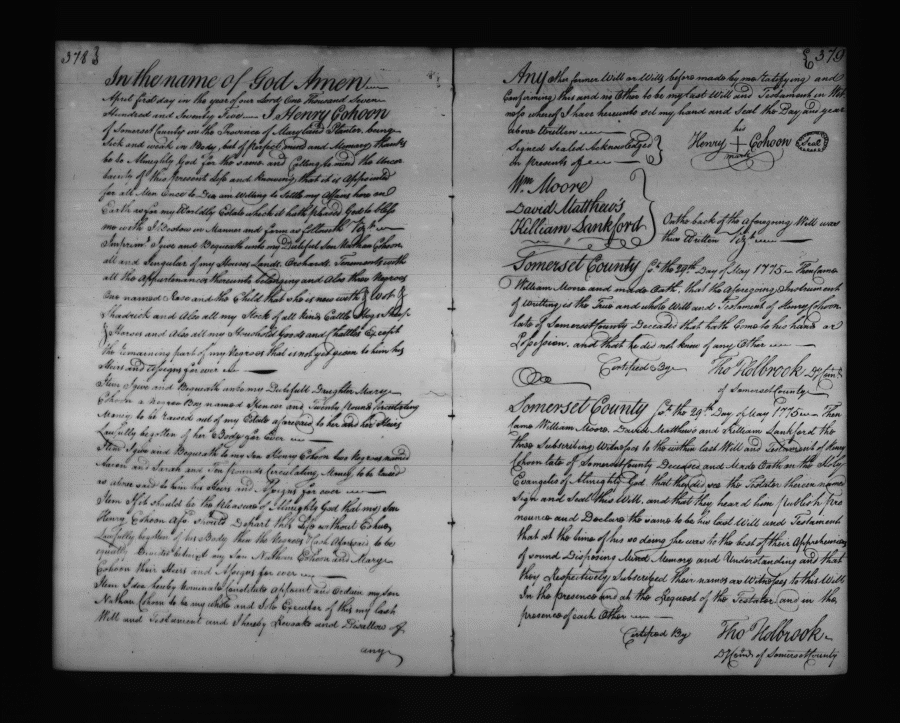 378
In the name of God Amen
April first day in the year of our Lord One Thousand Seven
Hundred and Seventy Five — I Henry Cohoon
of Somerset County in the Province of Maryland Planter being
Sick and weak in Body, but of perfect mind and Memory thanks
be to Almighty God for the same and Calling to mind the Uncer
tainty of this present Life and knowing that it is Appointed
for all Men Once to Die am Willing to Settle my Affairs here on
Earth as for my Worldly Estate which it hath pleased God to bless
me with I Bestow in Manner and form as followeth Viz.t
Imprim.s I give and Bequeath unto my Dutiful Son Nathan Cohoon
all and Singular of my Houses Lands Orchards Tenements with
all the Appurtenances thereunto belonging and Also three Negroes
One named Rose and the Child that she is now with
Shadrick and Also all my Stock of all kinds Cattle Hogs Sheep
Horses and Also all my Household Goods and Chattles Except
the remaining part of my Negroes that is not yet given to him his
Heirs and Assigns for ever
Item I give and Bequeath unto my Dutifull Daughter Mary
Cohoon a Negro Boy named Spencer and Twenty Pounds Circulating
Money to be Raised out of my Estate aforesaid to her and her Heirs
Lawfully begotten of her Body for Ever
Item I give and Bequeath to my Son Henry Cohoon two Negroes named
Aaron and Sarah and Ten Pounds Circulating Money to be raised
as above said to him his Heirs and Assigns for ever
Item If it should be the Pleasure of Almighty God that my Son
Henry Cohoon Afs.d Should Depart this Life without Issue
Lawfully begotten of his Body then the Negroes & Cash Aforesaid to be
equally Divided between my Son Nathan Cohoon and Mary
Cohoon their Heirs and Assigns for ever
Item I do hereby Nominate Constitute Appoint and Ordain my Son
Nathan Cohoon to be my whole and Sole Executor of this my last
Will and Testament and I hereby Revoke and Disallow of
any
379
Any other former Will or Wills before made by me ratifying and
Confirming this and no Other to be my last Will and Testament in Wit
ness whereof I have hereunto set my hand and Seal the Day and year
above Written
Signed Sealed Acknowledged
In Presents of
his
Henry + Cohoon Seal
mark
Wm Moore
David Matthews
Killiam Lankford
On the back of the aforegoing Will was
thus Written Viz.t
Somerset County Sc.t the 29th Day of May 1775 — Then Came
William Moore and made Oath, that the aforegoing Instrument
of writing is the True and whole Will and Testament of Henry Cohoon
late of Somerset County Deceased that hath Come to his hands or
Possession, and that he did not know of any Other
Certified By Tho Holbrook
of Somerset County
Somerset County Sc.t the 29th Day of May 1775 — Then
Came William Moore, David Matthews and Killiam Lankford the
three Subscribing Witnesses to the within last Will and Testament of Henry
Cohoon late of Somerset County Deceased and Made Oath on the Holy
Evangeles of Almighty God that they did see the Testator therein named
Sign and Seal this Will, and that they heard him Publish Pro
nounce and Declare the same to be his last Will and Testament
that at the time of his so doing he was to the best of their Apprehension
of sound Disposing Mind Memory and Understanding and that
they Respectively Subscribed their names as Witnesses to this Will
In the presence and at the Request of the Testator and in the
presence of each Other
Certified By Tho Holbrook
of Somerset County